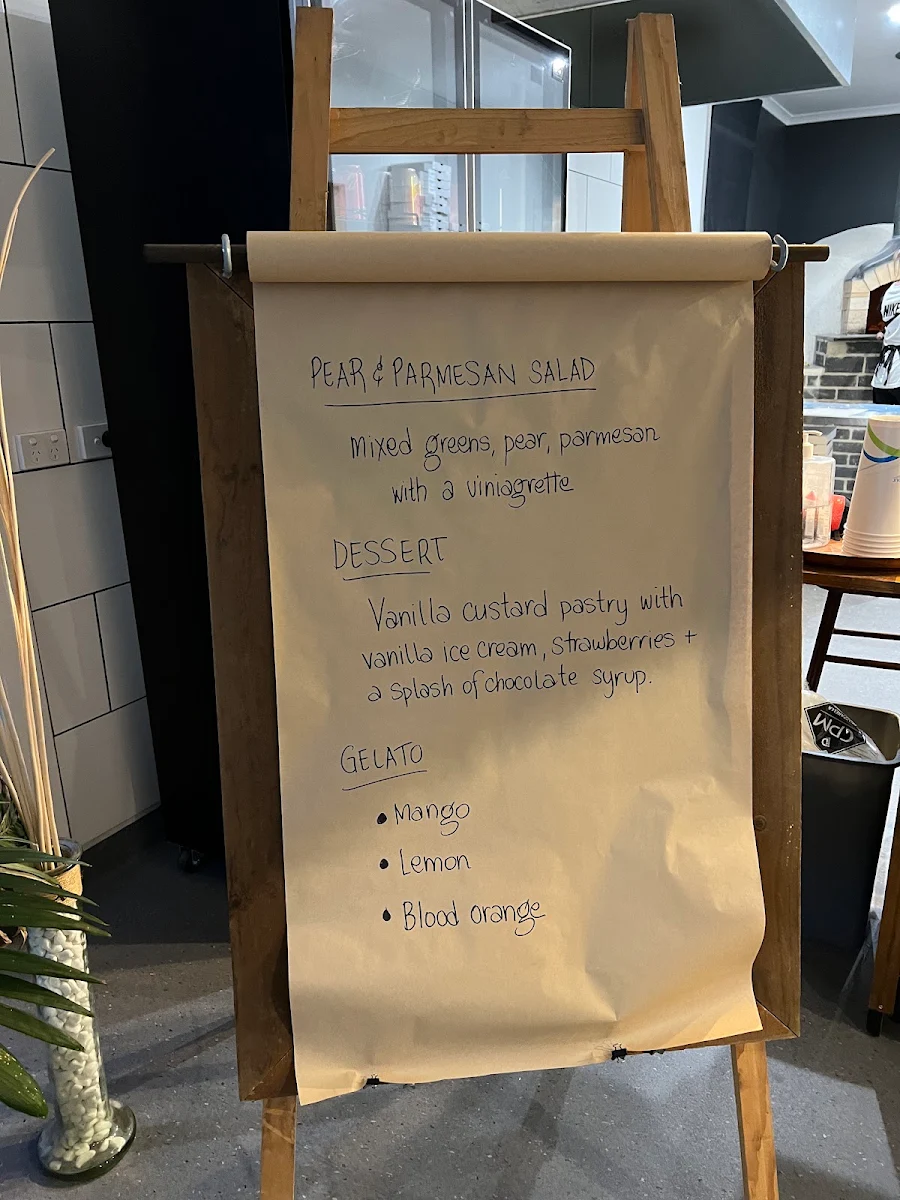 PEAR & PARMESAN SALAD
Mixed greens, pear, parmesan
with a viniagrette
DESSERT
Vanilla custard pastry with
vanilla ice cream, strawberries +
a splash of chocolate syrup.
GELATO
• Mango
• Lemon
• Blood orange
NIKE
GPM